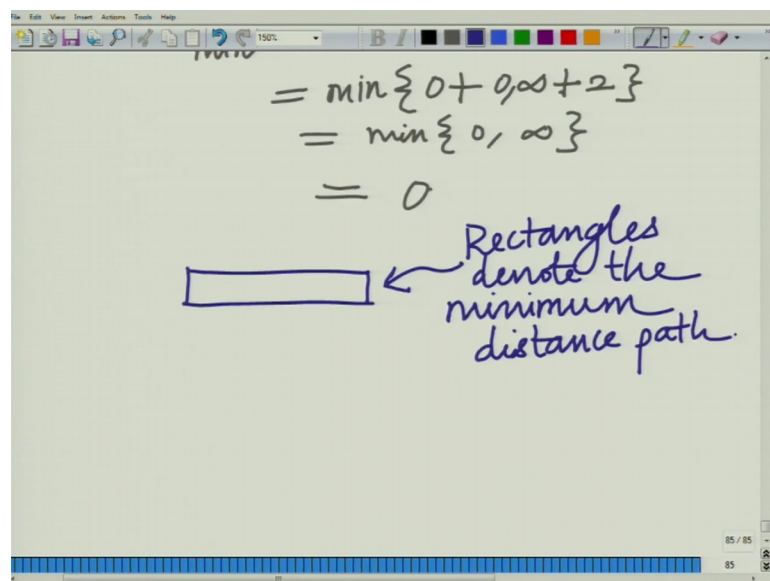 File Edit View Insert Actions Tools Help
150%
B I
= min { 0 + 0, ∞ + 2 }
= min { 0, ∞ }
= 0
Rectangles
denote the
minimum
distance path.
85 / 85
85